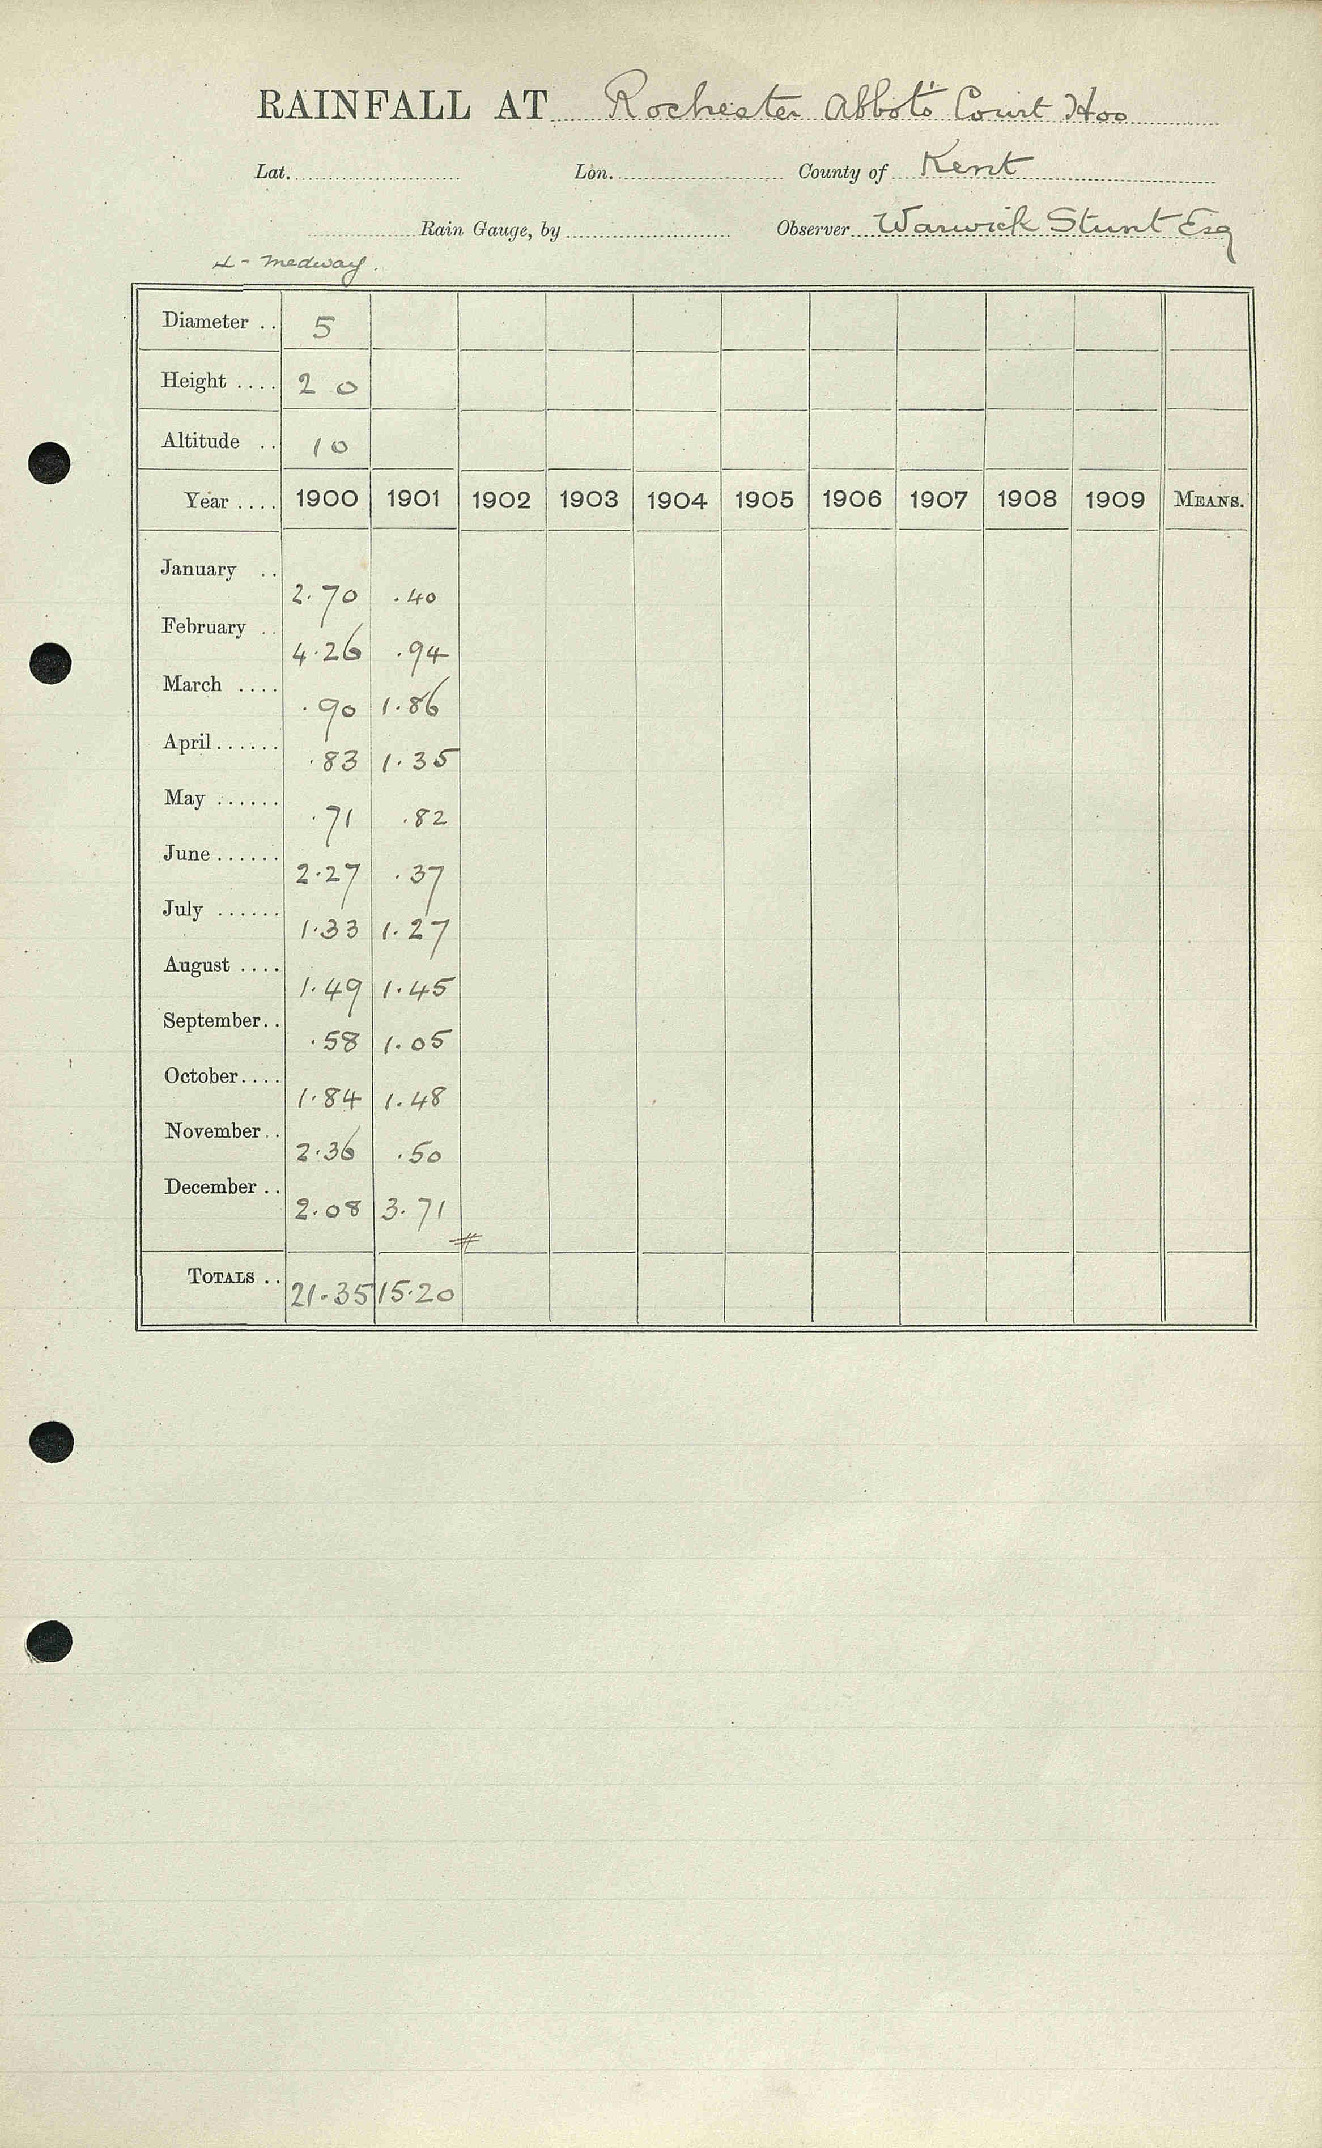 RAINFALL AT Rochester Abbot's Court Hoo
Lat. Lon. County of Kent
Rain Gauge, by Observer Warwick Stunt Esq
Medway.
Diameter .. 5
Height .... 2 0
Altitude .. 10
Year .... 1900 1901 1902 1903 1904 1905 1906 1907 1908 1909 MEANS.
January .. 2.70 .40
February .. 4.26 .94
March .... .90 1.86
April...... .83 1.35
May ...... .71 .82
June...... 2.27 .37
July ...... 1.33 1.27
August .... 1.49 1.45
September.. .58 1.05
October.... 1.84 1.48
November.. 2.36 .50
December .. 2.08 3.71
#
TOTALS .. 21.35 15.20